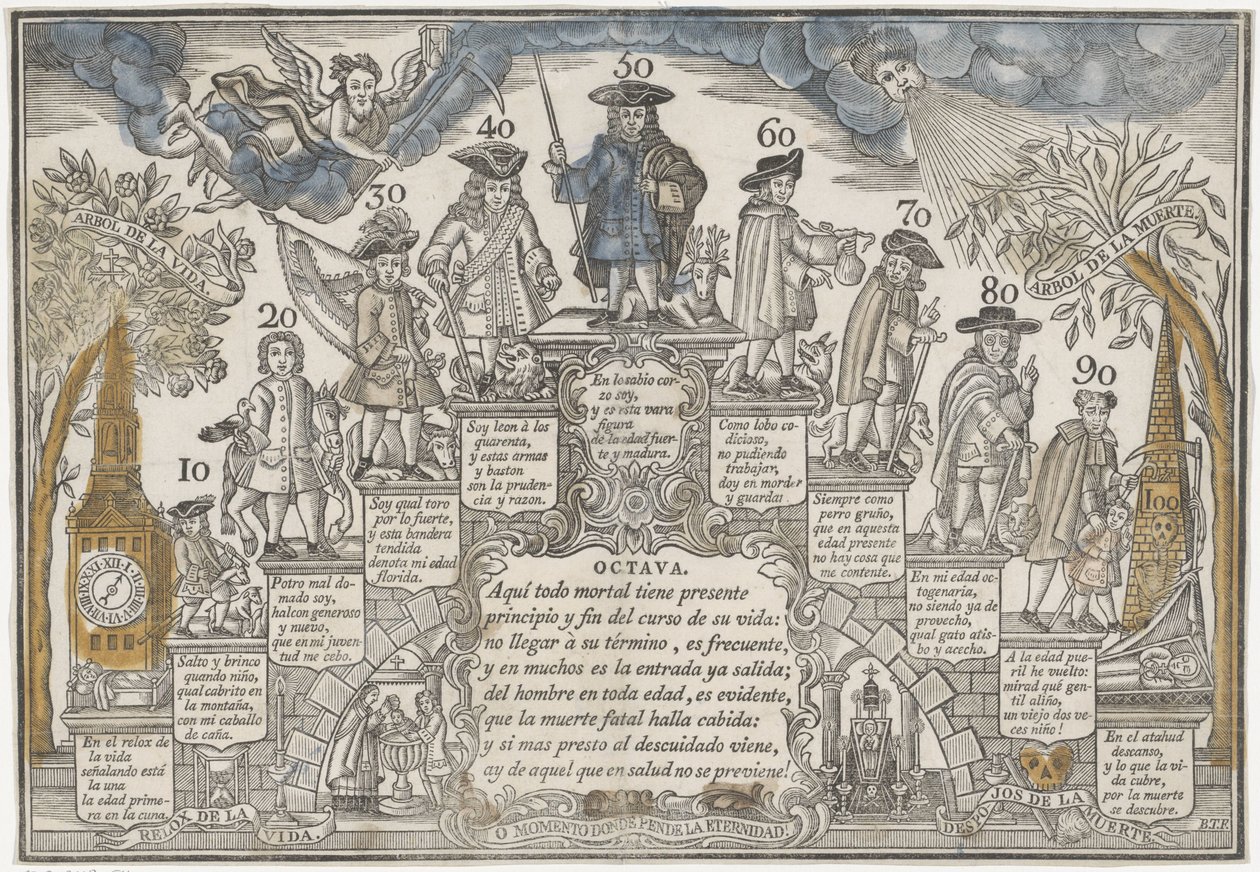 ARBOL DE LA VIDA.
ARBOL DE LA MUERTE.
10
20
30
40
50
60
70
80
90
100
En el relox de
la vida
señalando está
la una
la edad prime-
ra en la cuna.
Salto y brinco
quando niño,
qual cabrito en
la montaña,
con mi caballo
de caña.
Potro mal do-
mado soy,
halcon generoso
y nuevo,
que en mi juven-
tud me cebo.
Soy qual toro
por lo fuerte,
y esta bandera
tendida
denota mi edad
florida.
Soy leon à los
quarenta,
y estas armas
y baston
son la pruden-
cia y razon.
En lo sabio cor-
zo soy,
y es esta vara
figura
de la edad fuer-
te y madura.
Como lobo co-
dicioso,
no pudiendo
trabajar,
doy en morder
y guardar.
Siempre como
perro gruño,
que en aquesta
edad presente
no hay cosa que
me contente.
En mi edad oc-
togenaria,
no siendo ya de
provecho,
qual gato atis-
bo y acecho.
A la edad pue-
ril he vuelto:
mirad qué gen-
til aliño,
un viejo dos ve-
ces niño!
En el atahud
descanso,
y lo que la vi-
da cubre,
por la muerte
se descubre.
OCTAVA.
Aquí todo mortal tiene presente
principio y fin del curso de su vida:
no llegar à su término, es frecuente,
y en muchos es la entrada ya salida;
del hombre en toda edad, es evidente,
que la muerte fatal halla cabida:
y si mas presto al descuidado viene,
ay de aquel que en salud no se previene!
RELOX DE LA VIDA.
O MOMENTO DONDE PENDE LA ETERNIDAD!
DESPOJOS DE LA MUERTE
B.T.F.